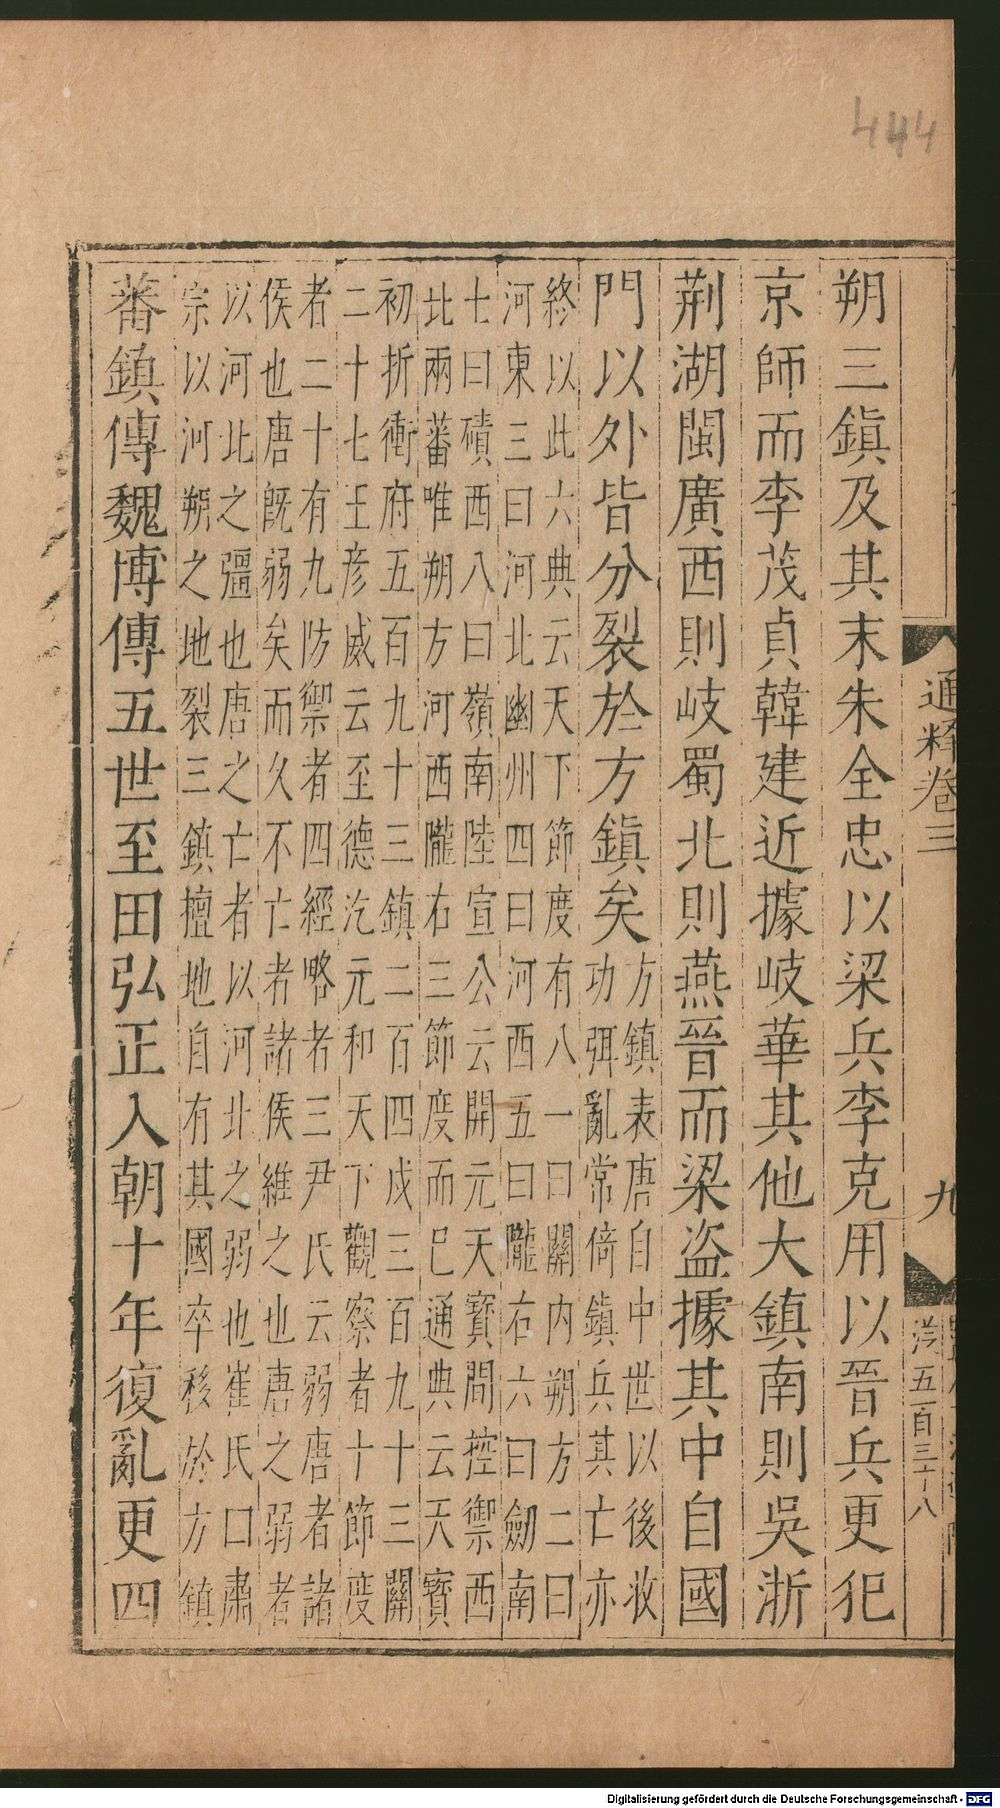 444
通釋卷三
九
五百三十八
朔三鎮及其末朱全忠以梁兵李克用以晉兵更犯
京師而李茂貞韓建近據岐華其他大鎮南則吳浙
荆湖閩廣西則岐蜀北則燕晉而梁盜據其中自國
門以外皆分裂於方鎮矣
方鎮表唐自中世以後收
功弭亂常倚鎮兵其亡亦
終以此六典云天下節度有八一曰關内朔方二曰
河東三曰河北幽州四曰河西五曰隴右六曰劒南
七曰磧西八曰嶺南陸宣公云開元天寶間控禦西
北兩蕃唯朔方河西隴右三節度而已通典云天寶
初折衝府五百九十三鎮二百四戍三百九十三關
二十七王彦威云至德訖元和天下觀察者十節度
者二十有九防禦者四經略者三尹氏云弱唐者諸
侯也唐旣弱矣而久不亡者諸侯維之也唐之弱者
以河北之彊也唐之亡者以河北之弱也崔氏曰肅
宗以河朔之地裂三鎮擅地自有其國卒移於方鎮
蕃鎮傳魏博傳五世至田弘正入朝十年復亂更四
Digitalisierung gefördert durch die Deutsche Forschungsgemeinschaft - DFG